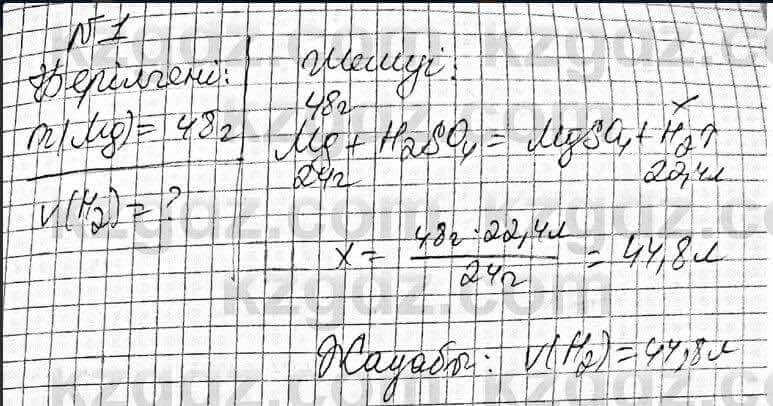 №1
Берілгені:
m(Mg) = 48г
V(H₂) = ?
Шешуі:
48г x
Mg + H₂SO₄ = MgSO₄ + H₂↑
24г 22,4л
x = 48г · 22,4л / 24г = 44,8л
Жауабы: V(H₂) = 44,8л
kzgdz.com